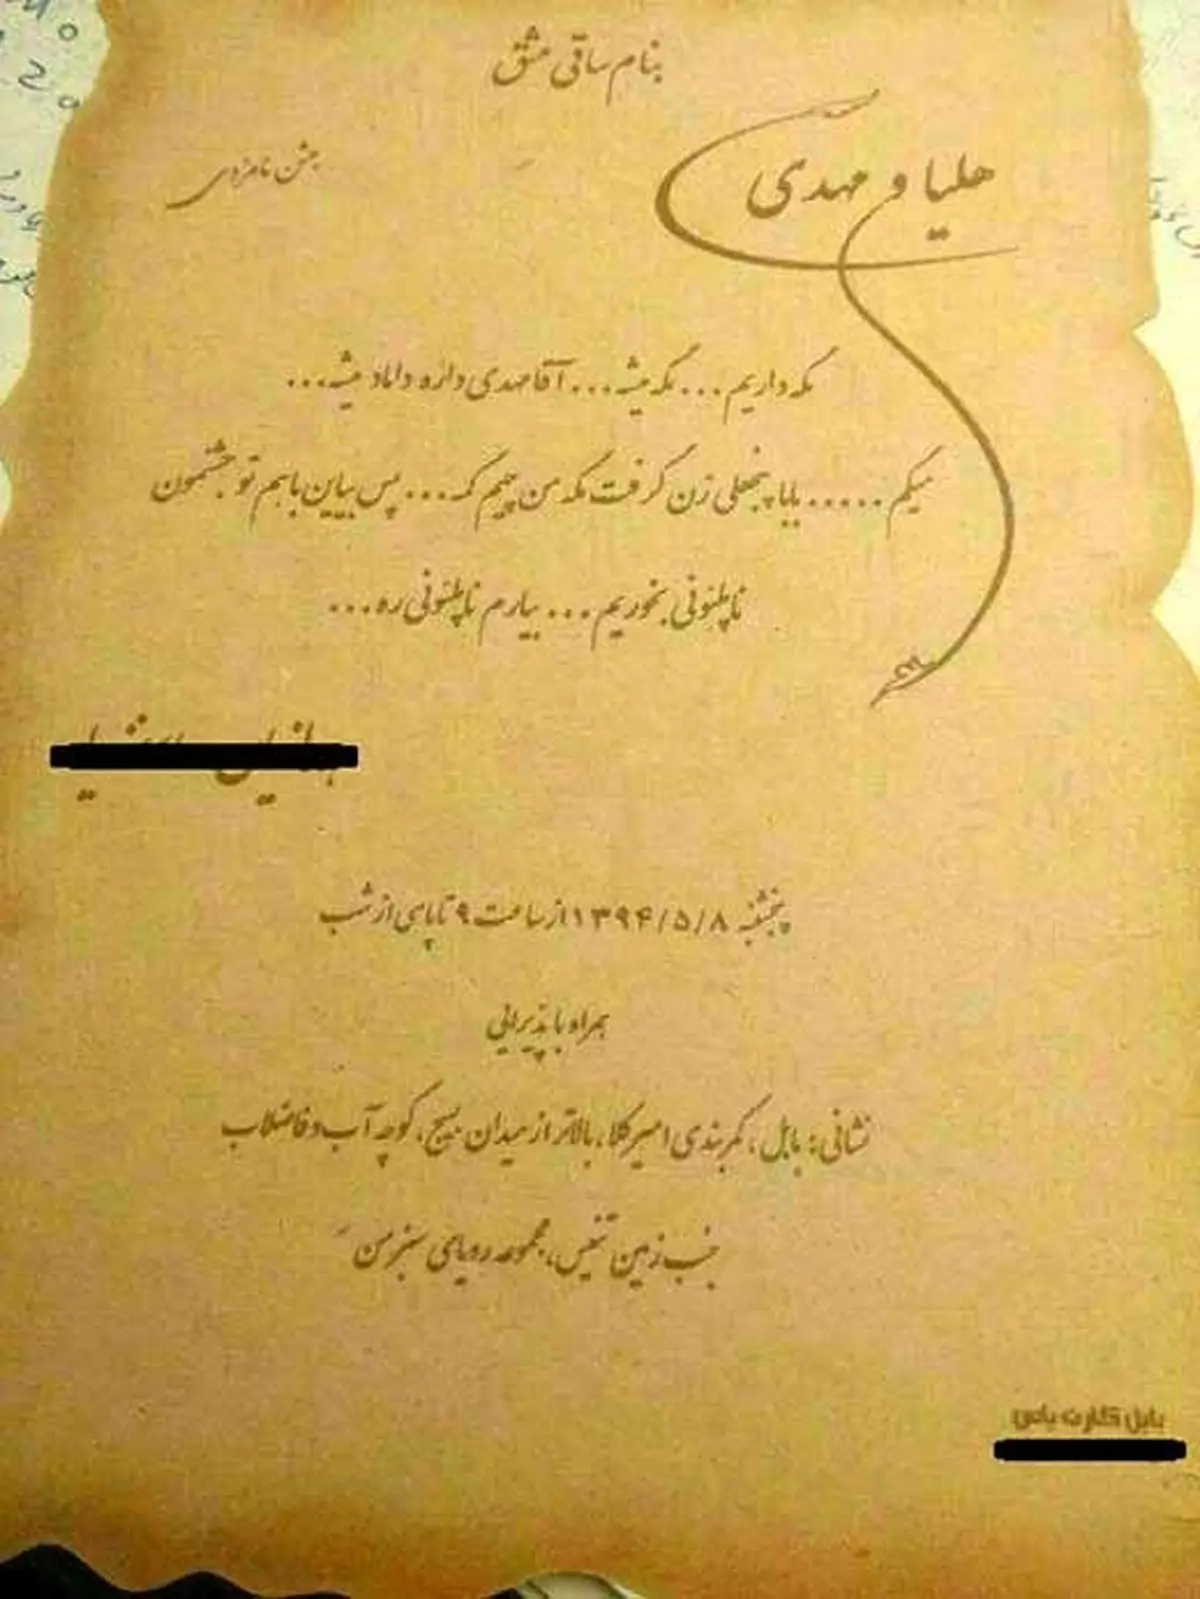 بنام ساقی عشق
هلیا و مهدی
جشن نامزدی
مگه داریم... مگه میشه... آقا مهدی داره داماد میشه...
میگم..... بابا پنجعلی زن گرفت مگه من چیم کمه... پس بیاین باهم تو جشنمون
ناپلئونی بخوریم... بیارم ناپلئونی ره...
پنجشنبه ۱۳۹۴/۵/۸ از ساعت ۹ تا پاسی از شب
همراه با پذیرایی
نشانی: بابل، کمربندی امیرکلا، بالاتر از میدان بسیج، کوچه آب و فاضلاب
جنب زمین تنیس، مجموعه رویای سبز من
بابل کارت یاس